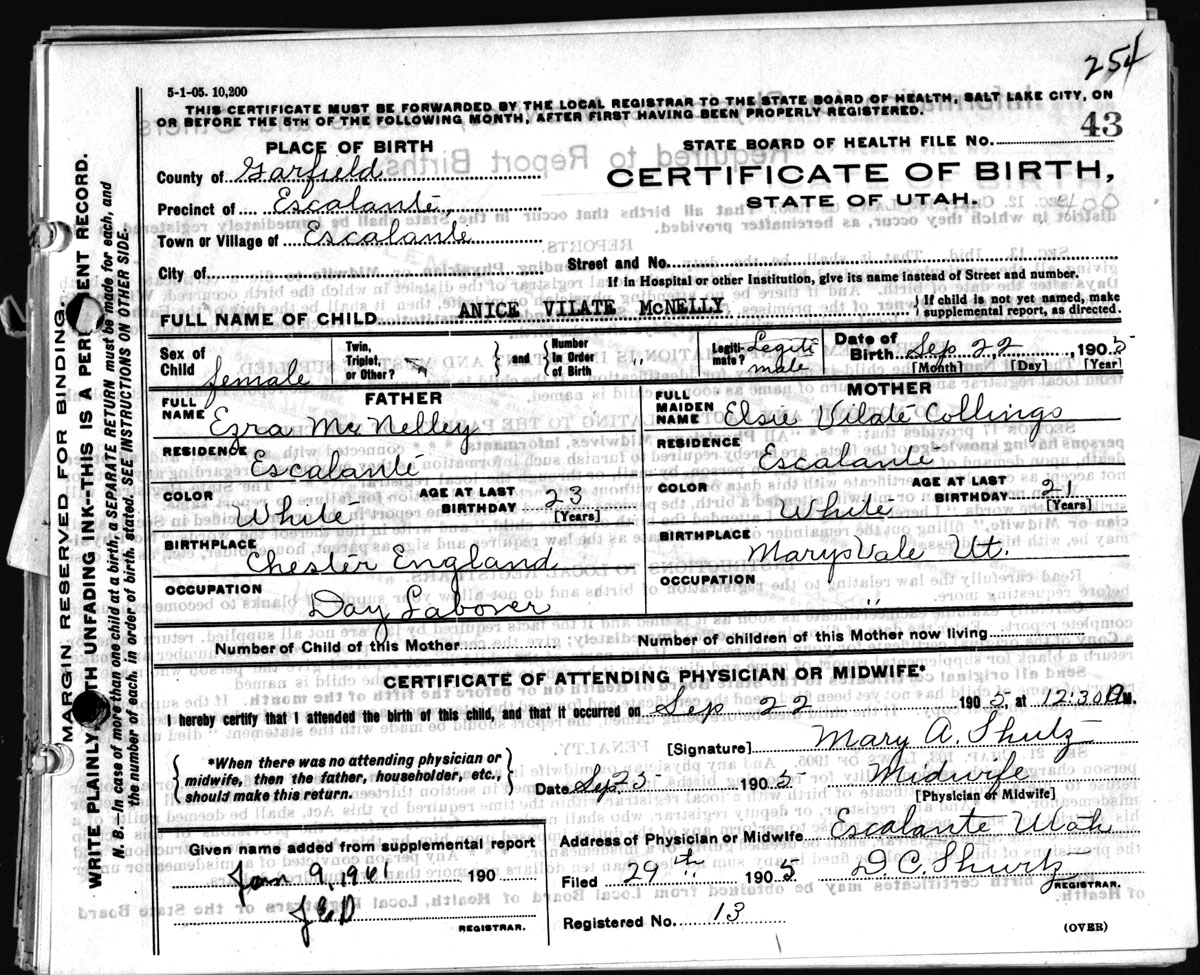 254
5-1-05. 10,200
THIS CERTIFICATE MUST BE FORWARDED BY THE LOCAL REGISTRAR TO THE STATE BOARD OF HEALTH, SALT LAKE CITY, ON
OR BEFORE THE 5TH OF THE FOLLOWING MONTH, AFTER FIRST HAVING BEEN PROPERLY REGISTERED.
PLACE OF BIRTH
STATE BOARD OF HEALTH FILE NO. 43
County of Garfield
CERTIFICATE OF BIRTH,
STATE OF UTAH.
Precinct of Escalante
Town or Village of Escalante
City of
Street and No.
If in Hospital or other Institution, give its name instead of Street and number.
FULL NAME OF CHILD ANICE VILATE McNELLY
{If child is not yet named, make
supplemental report, as directed.
Sex of Child female
Twin, Triplet, or Other?
} and {
Number in Order of Birth "
Legitimate? Legitimate
Date of Birth Sep 22, 1905
[Month] [Day] [Year]
FATHER
FULL NAME Ezra Mc Nelley
RESIDENCE Escalante
COLOR White
AGE AT LAST BIRTHDAY 23
[Years]
BIRTHPLACE Chester England
OCCUPATION Day Laborer
MOTHER
FULL MAIDEN NAME Elsie Vilate Collings
RESIDENCE Escalante
COLOR White
AGE AT LAST BIRTHDAY 21
[Years]
BIRTHPLACE MarysVale Ut.
OCCUPATION "
Number of Child of this Mother
Number of children of this Mother now living
CERTIFICATE OF ATTENDING PHYSICIAN OR MIDWIFE*
I hereby certify that I attended the birth of this child, and that it occurred on Sep 22 1905, at 12:30 A M.
{*When there was no attending physician or
midwife, then the father, householder, etc.,
should make this return.}
[Signature] Mary A. Shutz
Date Sep 23 1905
Midwife
[Physician or Midwife]
Address of Physician or Midwife Escalante Utah
Given name added from supplemental report
Jan 9, 1961 190
REGISTRAR.
Filed 29th 1905
D. C. Shurtz
REGISTRAR.
Registered No. 13
(OVER)
MARGIN RESERVED FOR BINDING.
WRITE PLAINLY WITH UNFADING INK--THIS IS A PERMANENT RECORD.
N. B.--In case of more than one child at a birth, a SEPARATE RETURN must be made for each, and
the number of each, in order of birth, stated. SEE INSTRUCTIONS ON OTHER SIDE.